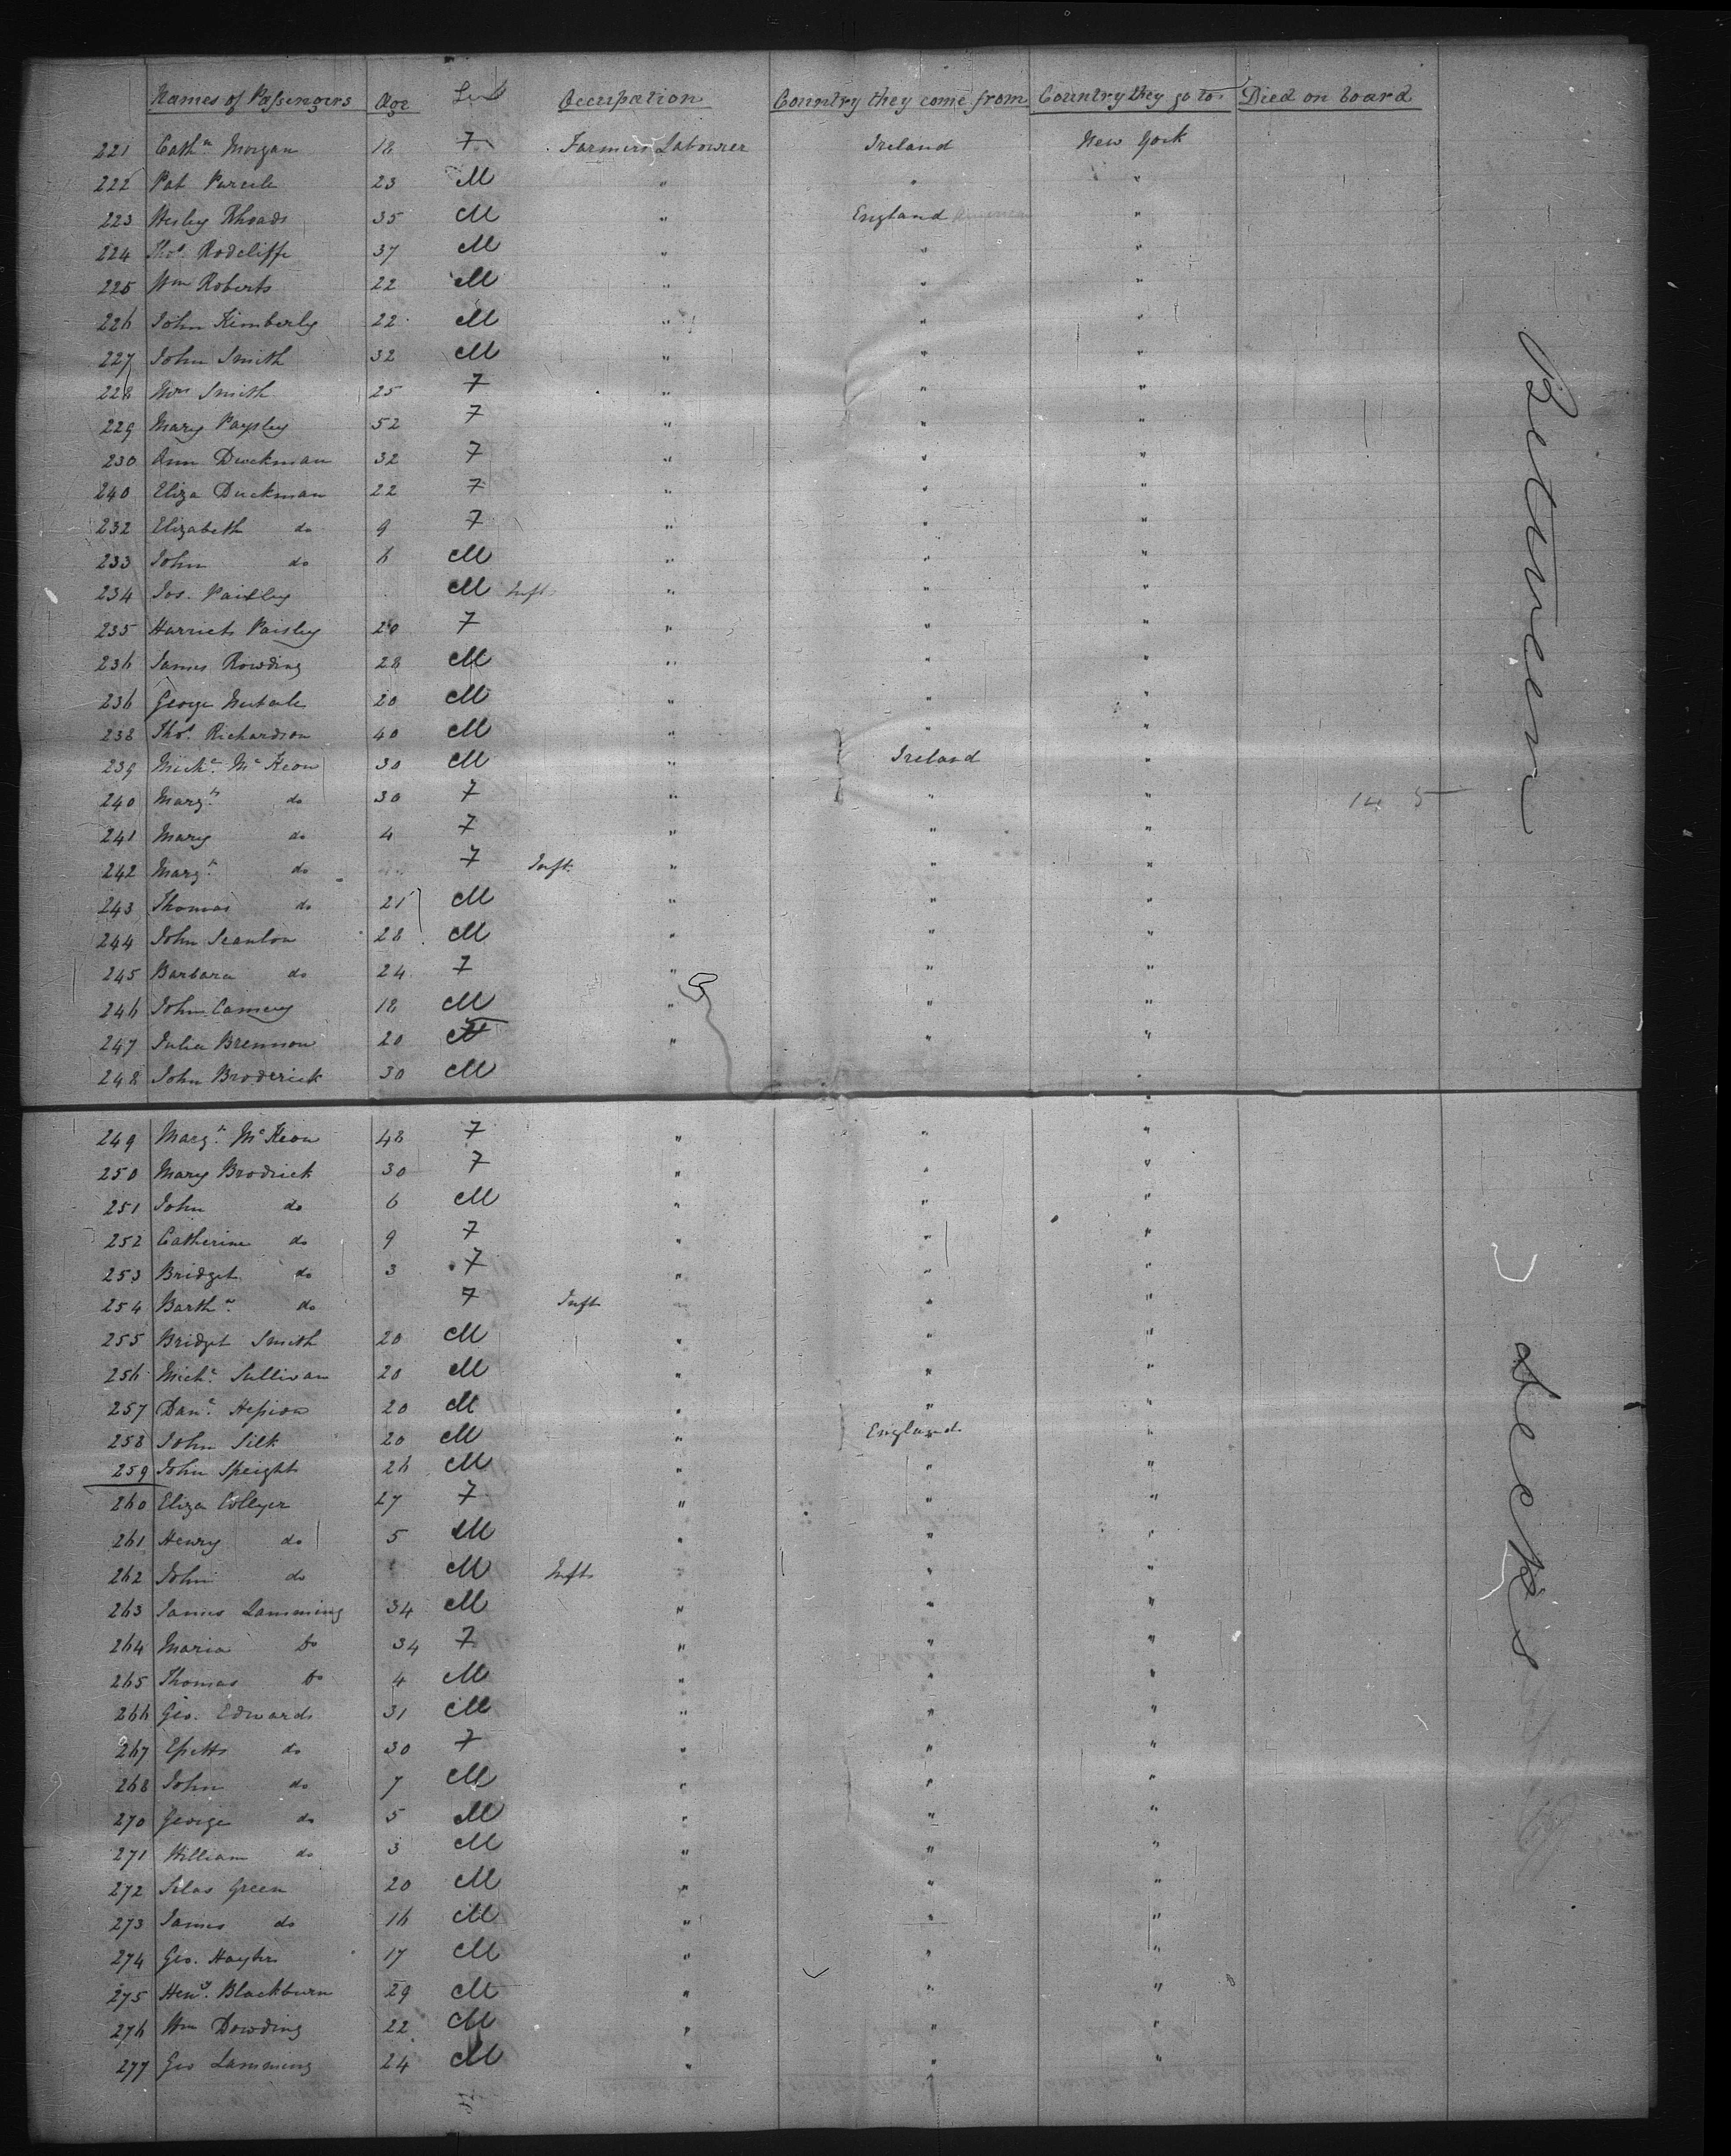 Names of Passengers Age Sex Occupation Country they come from Country they go to Died on board
221 Cath.n Morgan 18 F Farmers Labourer Ireland New York
222 Pat Purcile 23 M " " "
223 Wesley Rhoads 35 M " England "
224 Thos. Rodcliffe 37 M " " "
225 Wm Roberts 22 M " " "
226 John Kimberly 22 M " " "
227 John Smith 32 M " " "
228 Mrs Smith 25 F " " "
229 Mary Paysley 52 F " " "
230 Ann Duckman 32 F " " "
240 Eliza Duckman 22 F " " "
232 Elizabeth do 9 F " " "
233 John do 6 M " " "
234 Jos. Paisley M Inft " " "
235 Harriets Paisley 20 F " " "
236 James Rowding 28 M " " "
236 George 20 M " " "
238 Thos. Richardson 40 M " " "
239 Michl. McKeon 30 M " Ireland "
240 Margt. do 30 F " " " 14 5
241 Mary do 4 F " " "
242 Margt. do F Inft " " "
243 Thomas do 21 M " " "
244 John Scanlon 28 M " " "
245 Barbara do 24 F " " "
246 John Camery 18 M " " "
247 Julia Brennon 20 F " " "
248 John Broderick 30 M "
249 Margt. McKeon 48 F " " "
250 Mary Brodrick 30 F " " "
251 John do 6 M " " "
252 Catherine do 9 F " " "
253 Bridget do 3 F " " "
254 Barthw. do F Inft " " "
255 Bridget Smith 20 M " " "
256 Michl. Sullivan 20 M " " "
257 Danl. Hession 20 M " " "
258 John Silk 20 M " England "
259 John Speight 26 M " " "
260 Eliza Collyer 27 F " " "
261 Henry do 5 M " " "
262 John do M Inft " " "
263 James Lamming 34 M " " "
264 Maria Do 34 F " " "
265 Thomas Do 4 M " " "
266 Geo. Edwards 31 M " " "
267 do 30 F " " "
268 John do 7 M " " "
270 George do 5 M " " "
271 William do 3 M " " "
272 Silas Green 20 M " " "
273 James do 16 M " " "
274 Geo. Hayter 17 M " " "
275 Heny. Blackburn 29 M " " "
276 Wm Dowding 22 M " " "
277 Geo Lamming 24 M " " "
Between
decks